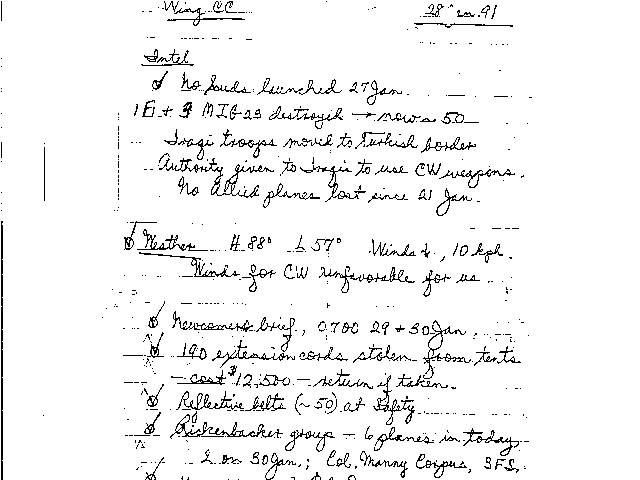 Wing CC 28 Jan 91
Intel
No Scuds launched 27 Jan.
MIG 29 destroyed → now ~ 50
Iraqi troops moved to Turkish border
Authority given to Iraqis to use CW weapons.
No Allied planes lost since 21 Jan.
Weather H 88° L 57° Winds , 10 kph.
Winds for CW unfavorable for us
Newcomers brief, 0700 29 + 30 Jan.
190 extension cords stolen from tents
- cost $12,500 - return if taken.
Reflective belts (~50) at Safety
Rickenbacker group - 6 planes in today
2 on 30 Jan.; Col. Manny Corpus,